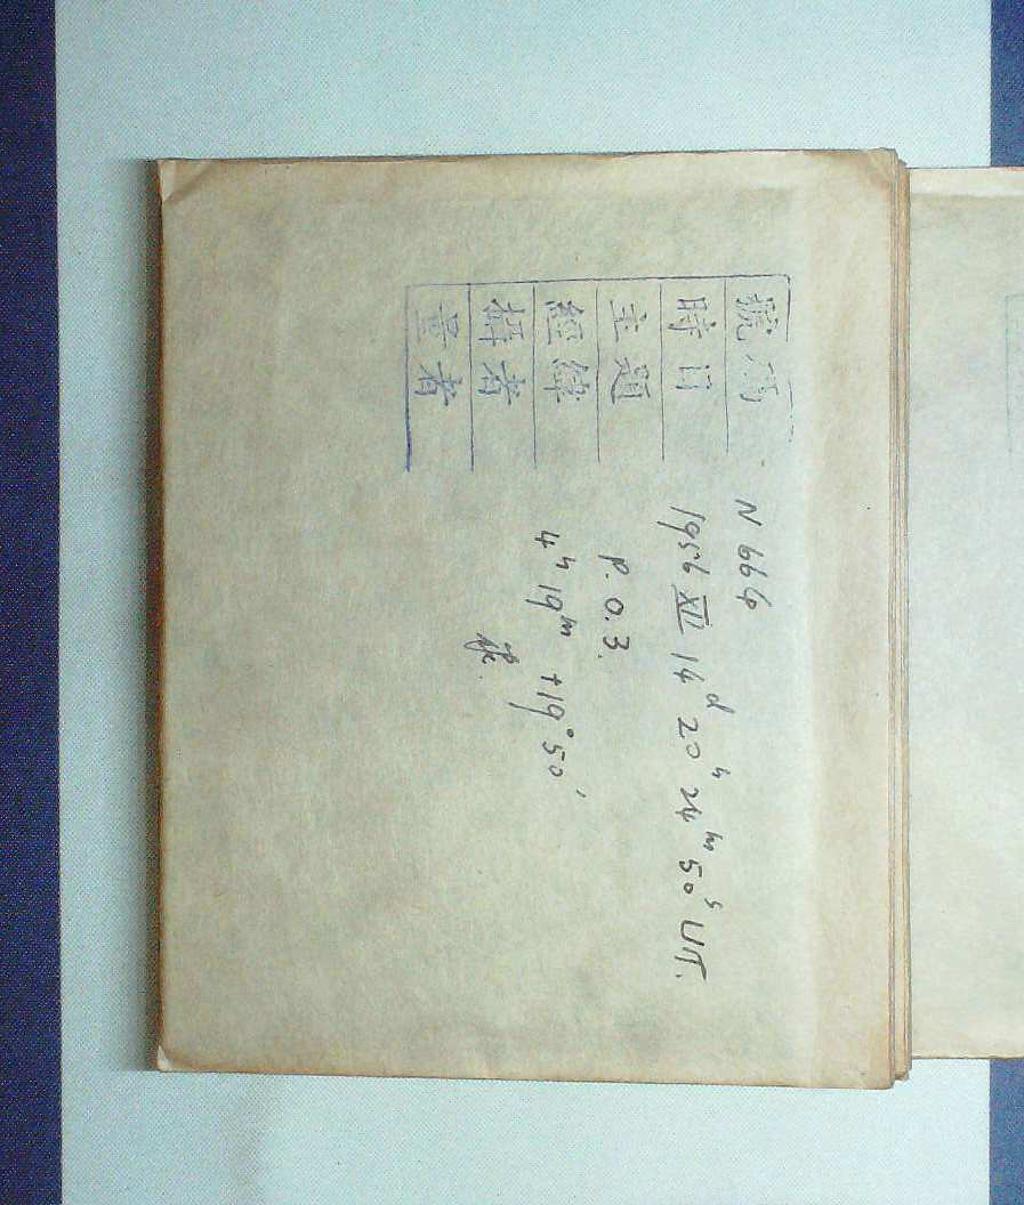 號碼 N 664
時日 1956 XII 14ᵈ 20ʰ 24ᵐ 50ˢ UT.
主題 P. O. 3.
經緯 4ʰ 19ᵐ +19° 50′
攝者
量者